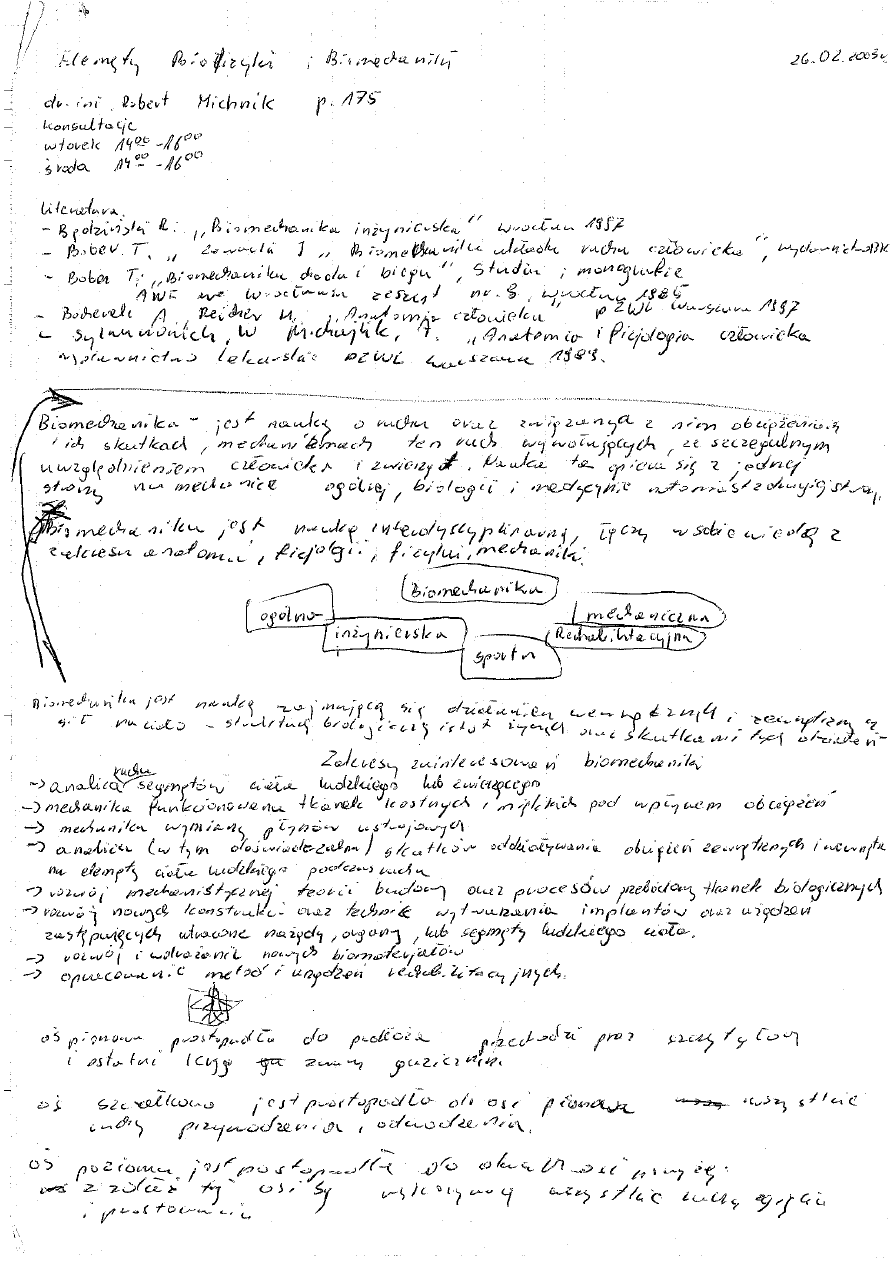 Elemęty Biofizyki i Biomechaniki
26.02.2003r
dr. inż. Robert Michnik p. 175
konsultacje
wtorek 14⁰⁰-16⁰⁰
środa 14⁰⁰-16⁰⁰
Literatura.
- Będziński R. „Biomechanika inżynierska" Wrocław 1997
- Bober. T. „ Zawada J „ Biomechanika układu ruchu człowieka",
- Bober T. „Biomechanika chodu i biegu", Studia i monografie
AWF we Wrocławiu zeszyt nr. 8, Wrocław 1985
- Bochenek A, Reicher M. „Anatomia człowieka" PZWL Warszawa 1997
- Sylwanowicz, W Michajlik, A. „Anatomia i fizjologia człowieka
wydawnictwo lekarskie PZWL Warszawa 1989.
Biomechanika - jest nauką o ruchu oraz związanych z nim obciążeniach
i ich skutkach, mechanizmach ten ruch wywołujących, ze szczegulnym
uwzględnieniem człowieka i zwierząt. Nauka ta opiera się z jednej
strony na mechanice ogólnej, biologii i medycynie natomiast z drugiej strony
Biomechanika jest nauką interdyscyplinarną, łączy w sobie wiedzę z
zakresu anatomii, fizjologii, fizyki, mechaniki.
Biomechanika
ogólna
mechaniczna
inżynierska
Rechabilitacyjna
sportu
Biomechanika jest nauką zajmującą się działaniem wewnętrznych i zewnętrznych
sił na ciało - struktury biologiczny istot żywych oraz skutkami tych działań
Zakresy zainteresowań biomechaniki
→ analiza ruchu segmętów ciała ludzkiego lub zwierzęcego
→ mechanika funkcjonowania tkanek kostnych i miękkich pod wpływem obciążeń
→ mechanika wymiany płynów ustrojowych
→ analiza (w tym doświadczalna) skutków oddziaływania obciążeń zewnętrznych i wewnętrz
na elemęty ciała ludzkiego podczas ruchu
→ rozwój mechanistycznej teorii budowy oraz procesów przebudowy tkanek biologicznych
→ rozwój nowych konstrukcji oraz technik wytwarzania implantów oraz urządzeń
zastępujących utracone narządy, organy, lub segmęty ludzkiego ciała.
→ rozwój i wdrażanie nowych biomateriałów
→ opracowanie metod i urządzeń rechabilitacyjnych.
oś pionowa prostopadła do podłoża przechodzi przez szczyt głowy
i ostatni kręg
oś szczałkowa jest prostopadła do osi pionowa wszystkie
ruchy przywodzenia i odwodzenia.
oś pozioma jest postopadła do
tej osi są wykonywane wszystkie ruchy zgięcia
i prostowania